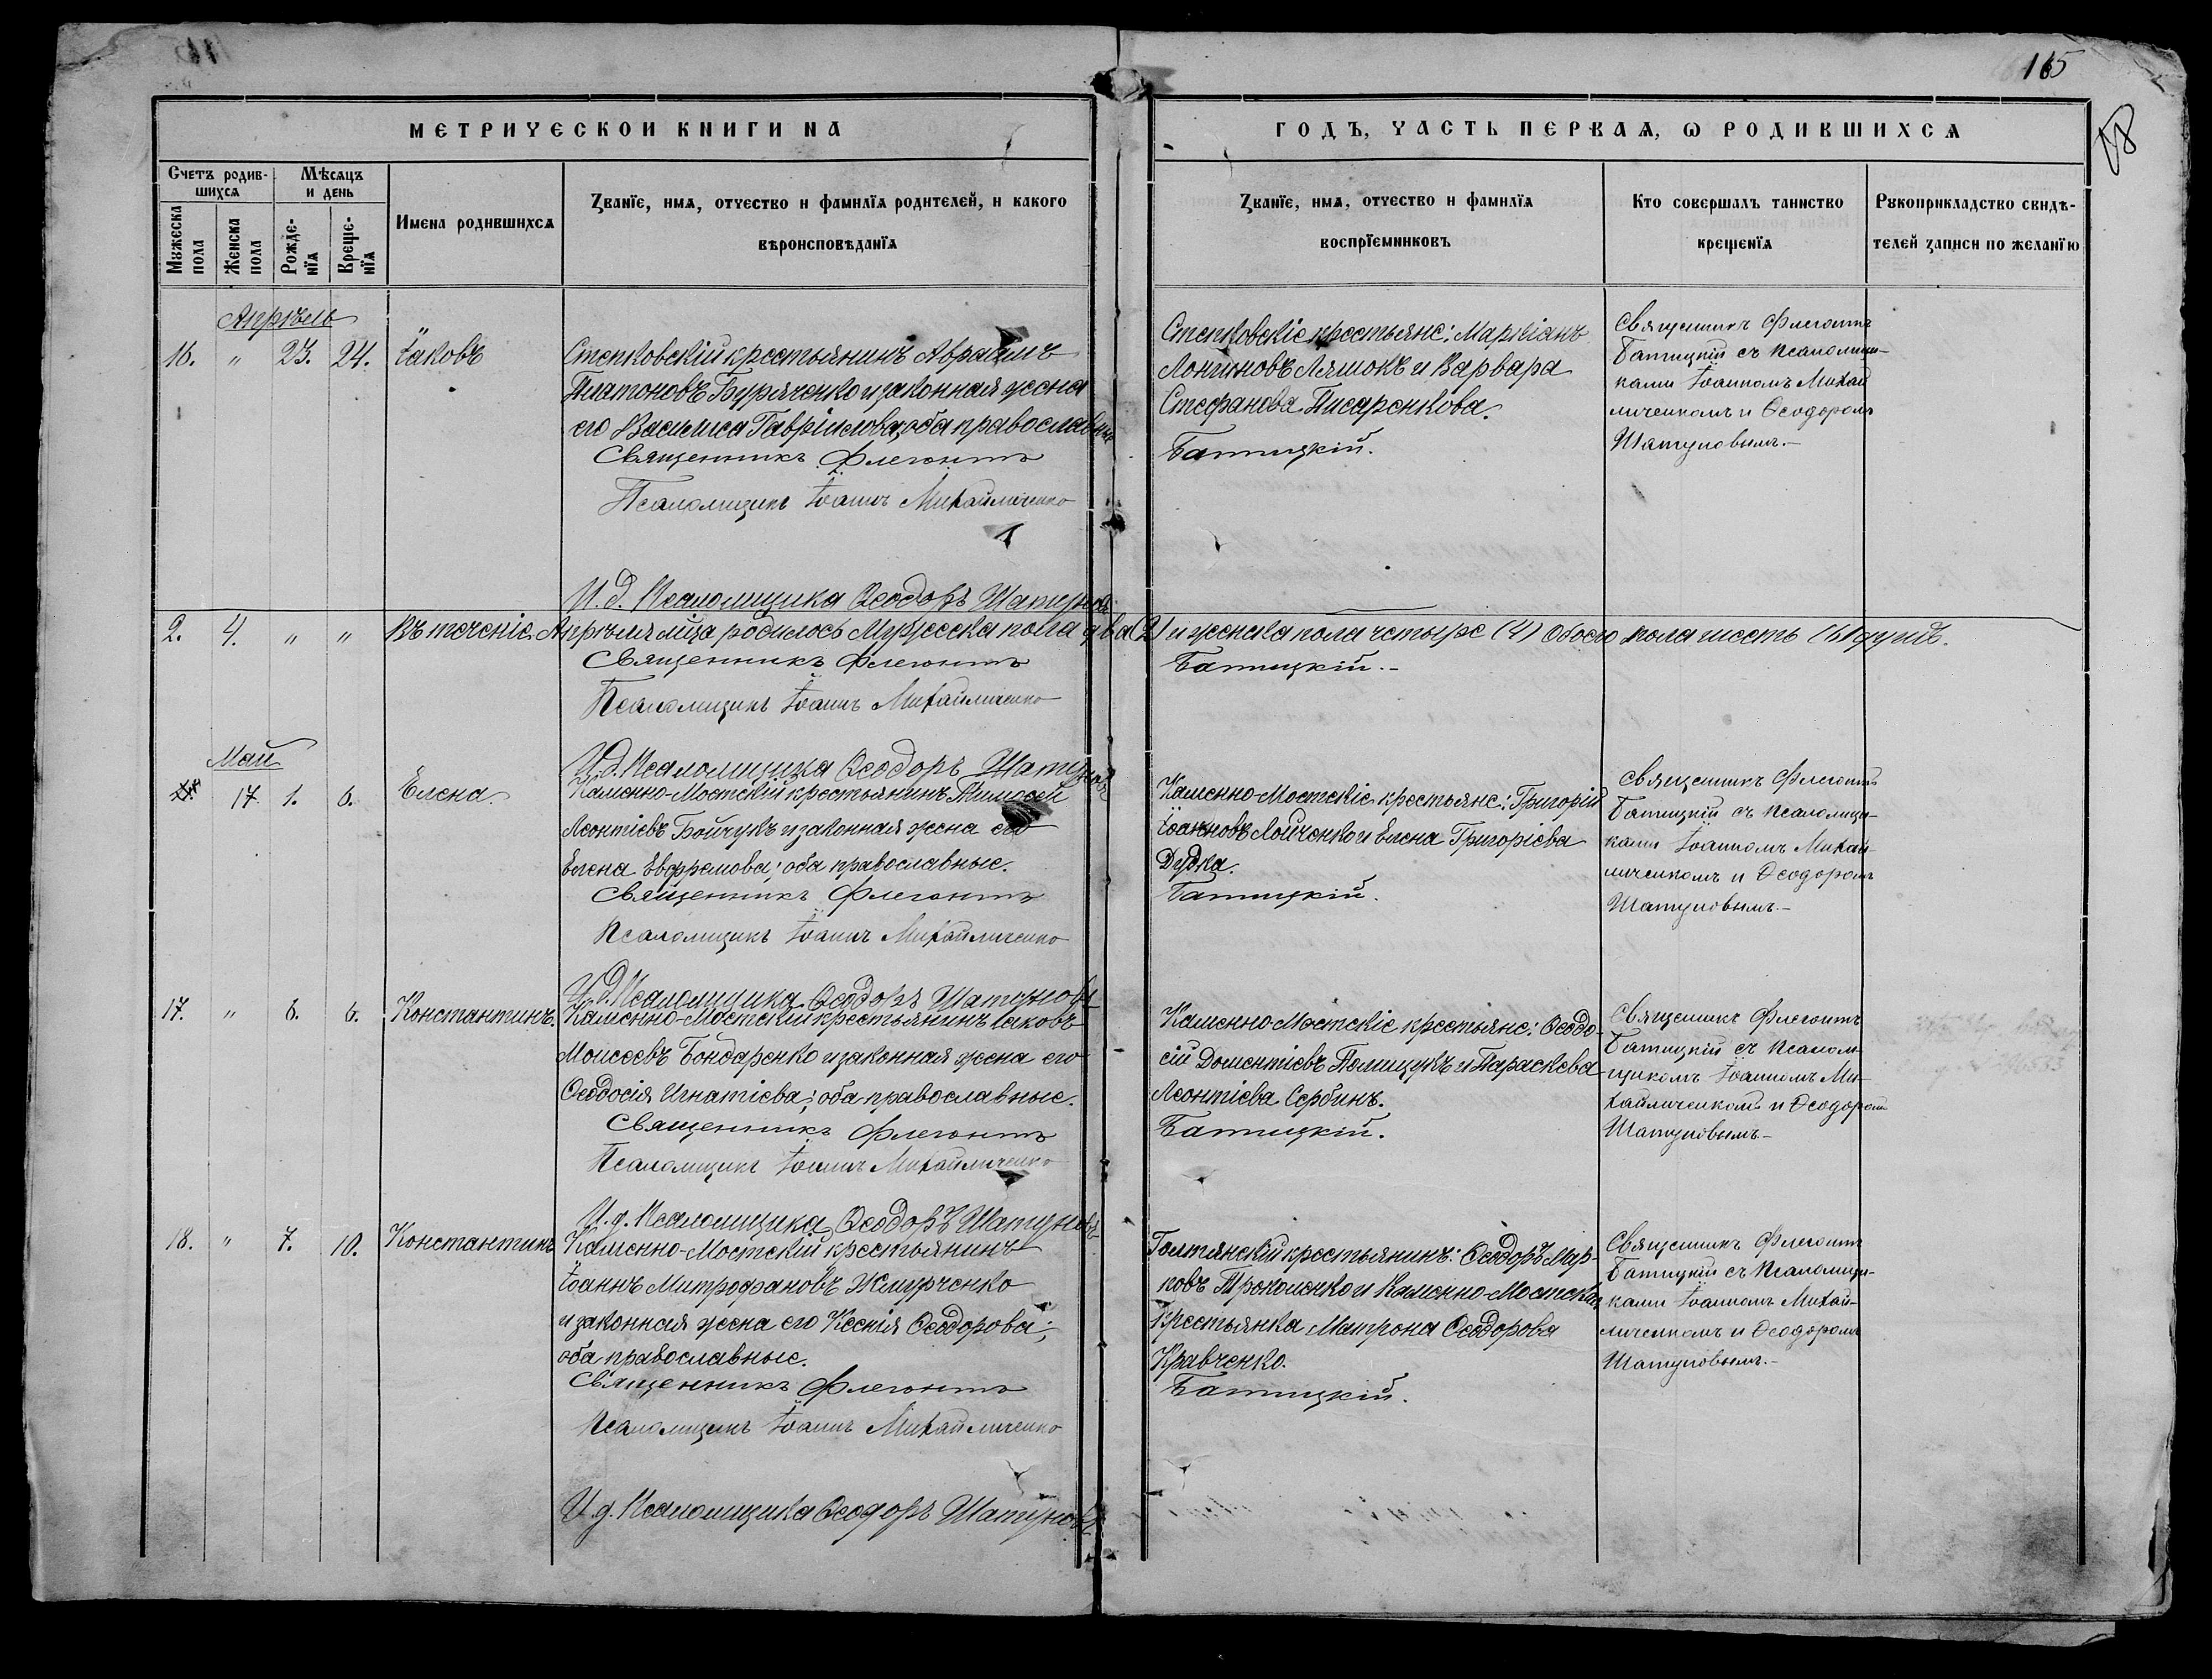 165
МЕТРИЧЕСКОЙ КНИГИ НА
ГОДЪ, ЧАСТЬ ПЕРВАЯ, Ѡ РОДИВШИХСЯ
Счетъ родив-
шихся
Мѣсяцъ
и день
Мужеска
пола
Женска
пола
Рожде-
нїя
Креще-
нїя
Имена родившихся
Званїе, имя, отчество и фамилїя родителей, и какого
вѣроисповѣданїя
Званїе, имя, отчество и фамилїя
воспрїемниковъ
Кто совершалъ таинство
крещенїя
Рукоприкладство свидѣ-
телей записи по желанїю
Апрѣль
16. " 23. 24. Іаковъ
Степковскій крестьянинъ Авраамъ
Платоновъ Буряченко и законная жена
его Василиса Гавріилова, оба православные
Священникъ Флегонтъ
Псаломщикъ Іоаннъ Михайличенко
И. д. Псаломщика Ѳеодоръ Шатуновъ
Степковскіе крестьяне: Маркіанъ
Лонгиновъ Ляшокъ и Варвара
Стефанова Писаренкова.
Батицкій.
Священникъ Флегонтъ
Батицкій съ псаломщи-
ками Іоанномъ Михай
личенкомъ и Ѳеодоромъ
Шатуновымъ.-
2. 4. " " Въ теченіе Апрѣля м-ца родилось Мужеска пола два (2) и женска пола четыре (4) Обоего пола шесть (6) душъ.
Священникъ Флегонтъ
Батицкій.-
Псаломщикъ Іоаннъ Михайличенко
И. д. Псаломщика Ѳеодоръ Шатуновъ
Май
17 1. 6. Елена.
Каменно-Мостскій крестьянинъ Тимоѳей
Леонтіевъ Бойчукъ и законная жена его
Елена Евфремова; оба православные.
Священникъ Флегонтъ
Псаломщикъ Іоаннъ Михайличенко
И. д. Псаломщика Ѳеодоръ Шатуновъ
Каменно-Мостскіе крестьяне: Григорій
Іоанновъ Лойченко и Елена Григоріева
Дудка.
Батицкій.
Священникъ Флегонтъ
Батицкій съ псаломщи-
ками Іоанномъ Михай-
личенкомъ и Ѳеодоромъ
Шатуновымъ.-
17. " 6. 6. Константинъ.
Каменно-Мостскій крестьянинъ Іаковъ
Моисеевъ Бондаренко и законная жена его
Ѳеодосія Игнатіева; оба православные.
Священникъ Флегонтъ
Псаломщикъ Іоаннъ Михайличенко
И. д. Псаломщика Ѳеодоръ Шатуновъ
Каменно-Мостскіе крестьяне: Ѳеодо-
сій Дометіевъ Полищукъ и Параскева
Леонтіева Сербинъ.
Батицкій.
Священникъ Флегонтъ
Батицкій съ псалом-
щикомъ Іоанномъ Ми-
хайличенкомъ и Ѳеодоромъ
Шатуновымъ.-
18. " 7. 10. Константинъ
Каменно-Мостскій крестьянинъ
Іоаннъ Митрофановъ Жмурченко
и законная жена его Ксенія Ѳеодорова;
оба православные.
Священникъ Флегонтъ
Псаломщикъ Іоаннъ Михайличенко
И. д. Псаломщика Ѳеодоръ Шатуновъ
Голтянскій крестьянинъ: Ѳеодоръ Мар-
ковъ и Каменно-Мостская
крестьянка Матрона Ѳеодорова
Кравченко.
Батицкій.
Священникъ Флегонтъ
Батицкій съ псаломщи-
ками Іоанномъ Михай-
личенкомъ и Ѳеодоромъ
Шатуновымъ.-